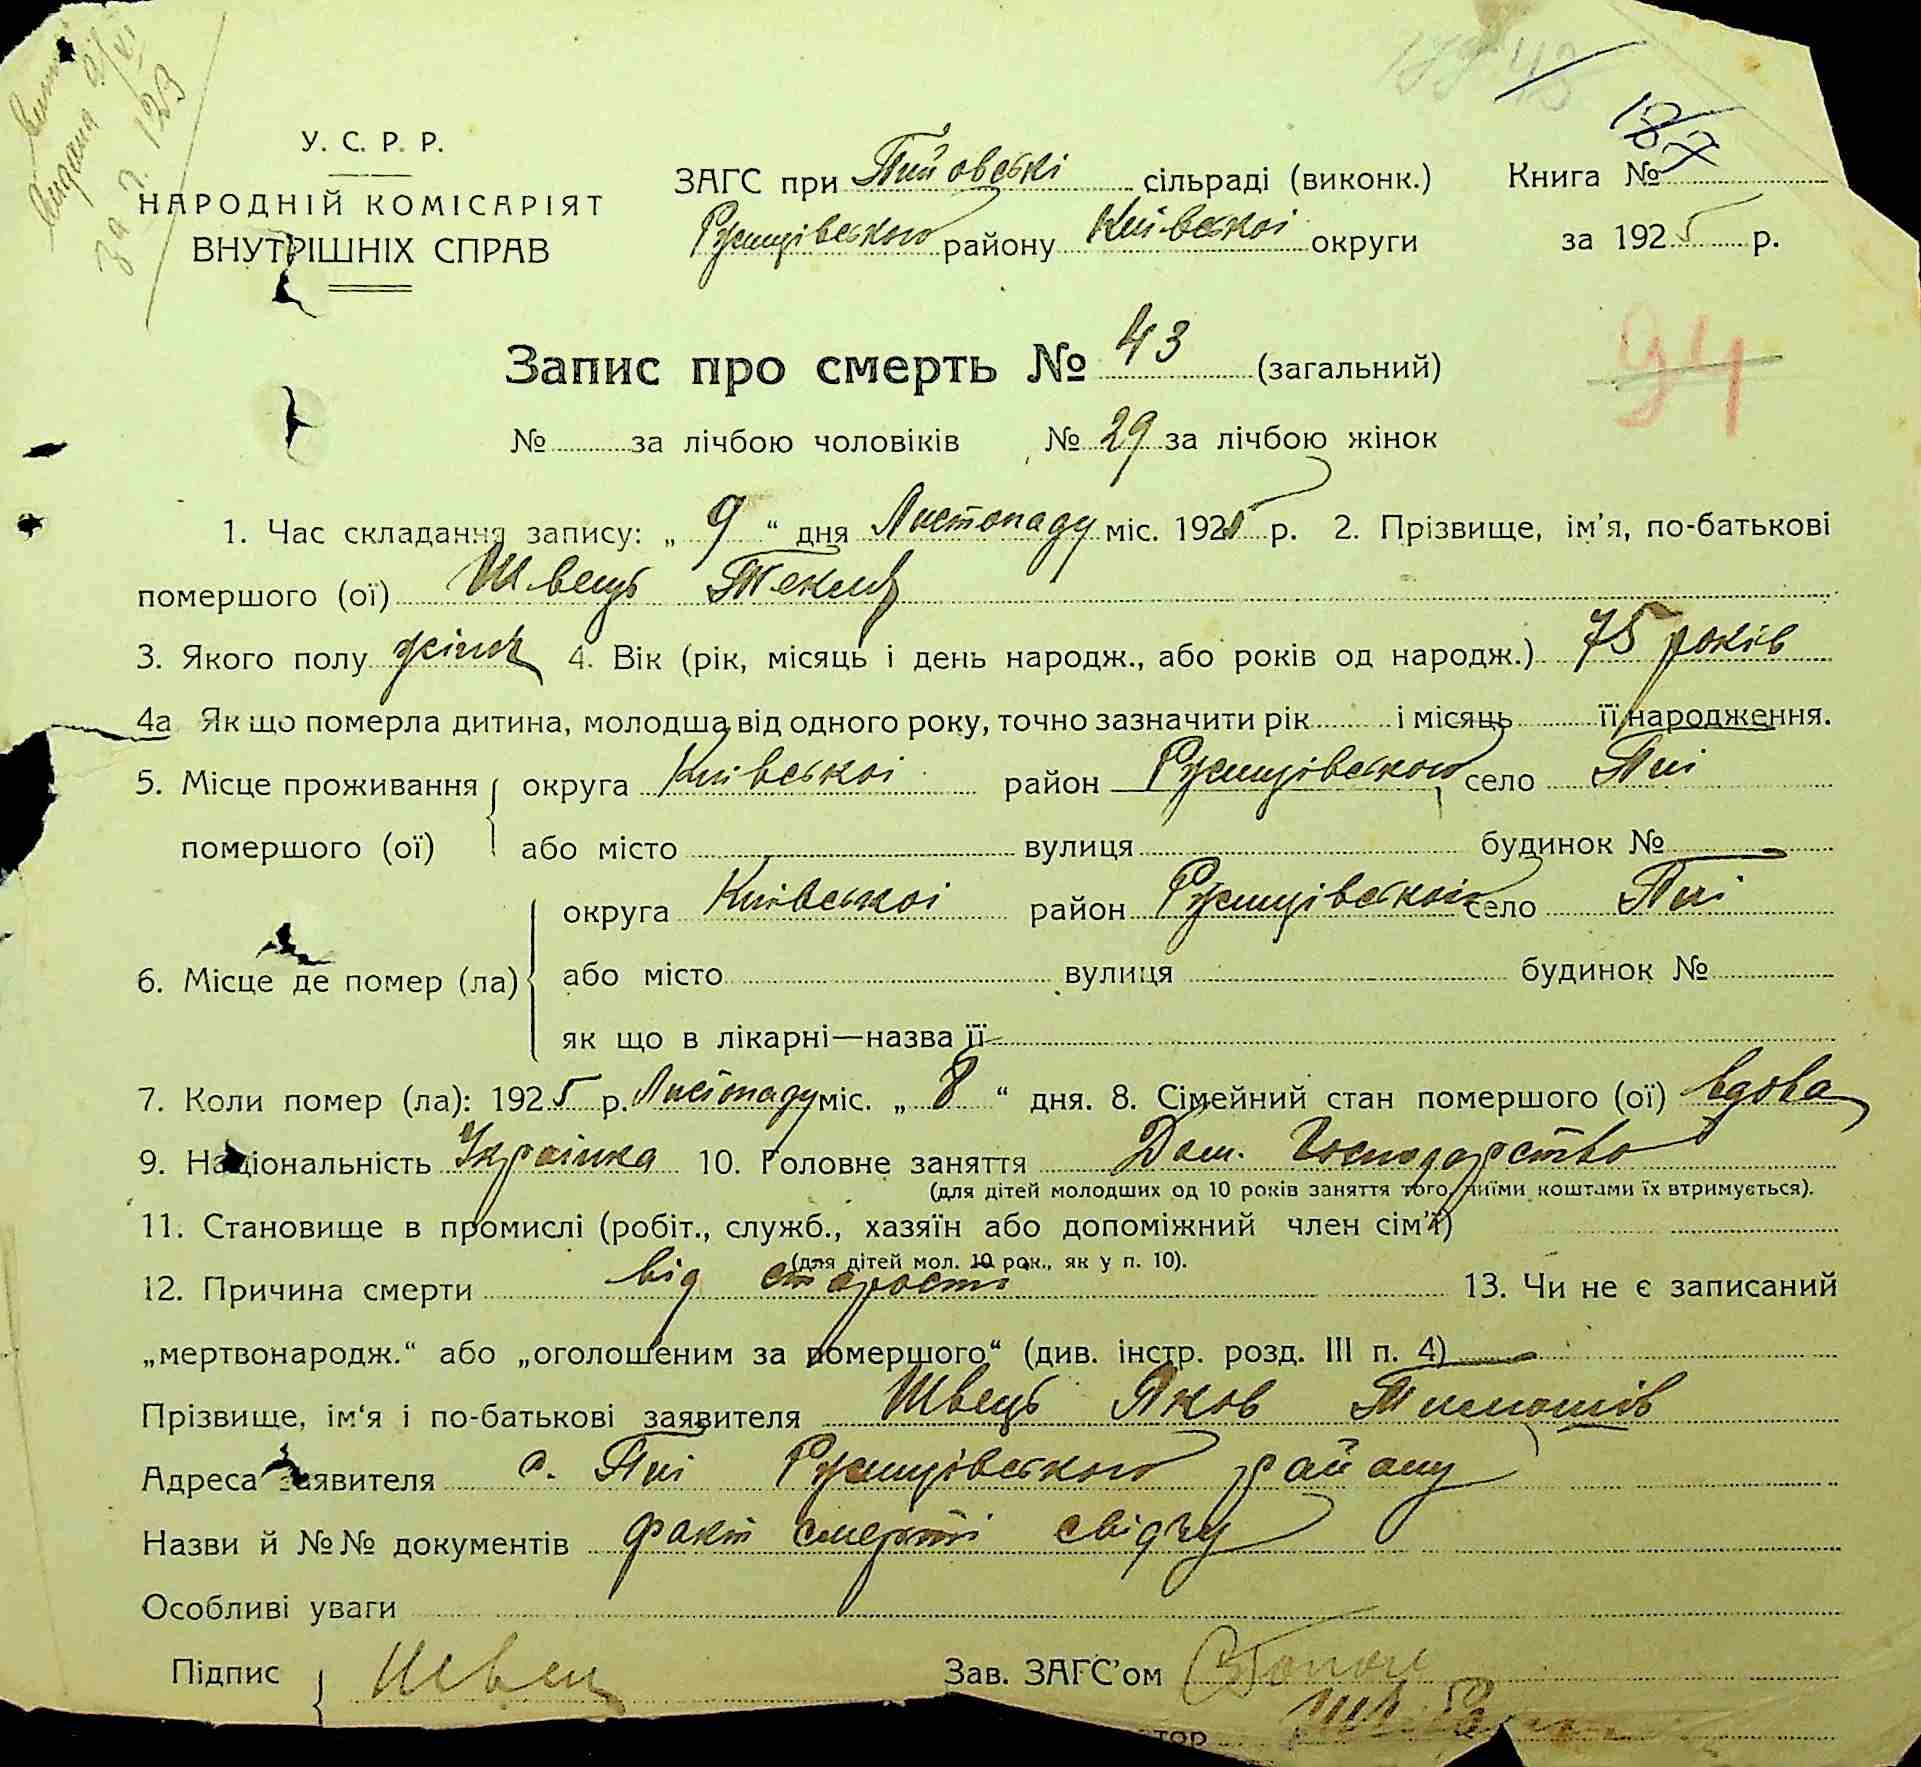 видана
за № 123
43
У. С. Р. Р.
НАРОДНІЙ КОМІСАРІЯТ
ВНУТРІШНІХ СПРАВ
ЗАГС при Пиї́овські сільраді (виконк.) Книга №
Ржищівського району Київської округи за 1925 р.
Запис про смерть № 43 (загальний)
94
№ за лічбою чоловіків № 29 за лічбою жінок
1. Час складання запису: „ 9 “ дня Листопаду міс. 1925 р. 2. Прізвище, ім'я, по-батькові
помершого (ої) Швець Текля
3. Якого полу жіноч 4. Вік (рік, місяць і день народж., або років од народж.) 75 років
4а Як що померла дитина, молодша від одного року, точно зазначити рік і місяць її народження.
5. Місце проживання округа Київської район Ржищівського село Пиї
помершого (ої) або місто вулиця будинок №
округа Київської район Ржищівського село Пиї
6. Місце де помер (ла) або місто вулиця будинок №
як що в лікарні—назва її
7. Коли помер (ла): 1925 р. Листопаду міс. „ 8 “ дня. 8. Сімейний стан помершого (ої) вдова
9. Національність Українка 10. Головне заняття Дом. Господарство
(для дітей молодших од 10 років заняття того, чиїми коштами їх втримується).
11. Становище в промислі (робіт., служб., хазяїн або допоміжний член сім'ї)
(для дітей мол. 10 рок., як у п. 10).
12. Причина смерти від старости 13. Чи не є записаний
„мертвонародж.“ або „оголошеним за помершого“ (див. інстр. розд. III п. 4) —
Прізвище, ім'я і по-батькові заявителя Швець Яков Тимошів
Адреса заявителя с. Пиї Ржищівського району
Назви й №№ документів факт смерті свідчу
Особливі уваги
Підпис Швец Зав. ЗАГС'ом
тор